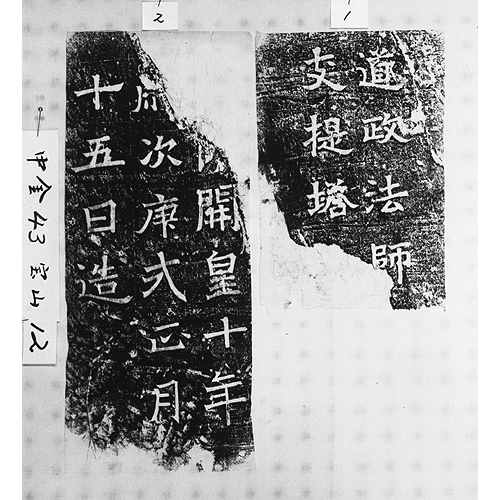 1
道政法師
支提塔
2
開皇十年
歲次庚戌正月
十五日造
中金43宝山12